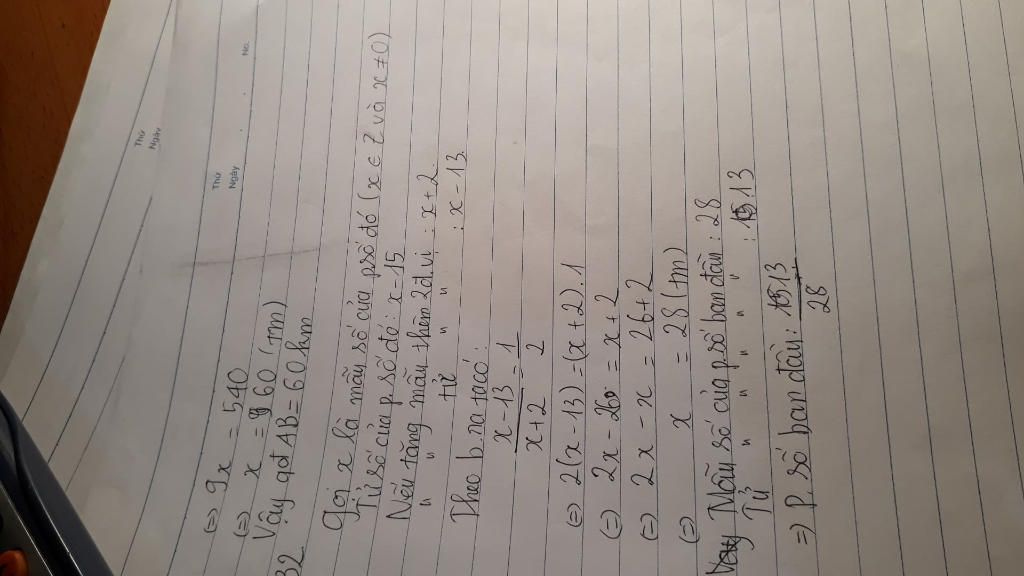 Thứ
Ngày
No.
Thứ
Ngày
(=) 9x = 540
(=) x = 60 (tm)
Vậy qđ AB = 60 km
32
Gọi x là mẫu số của p số đó (x ∈ Z và x ≠ 0)
Tử số của p. số đó: x - 15
Nếu tăng mẫu thêm 2đ.vị : x + 2.
" " tử " " : x - 13.
Theo b.ra ta có:
x - 13 / x + 2 = 1 / 2
(=) 2(x - 13) = (x + 2).1
(=) 2x - 26 = x + 2
(=) 2x - x = 26 + 2
(=) x = 28 (tm)
Vậy Mẫu số của p số ban đầu : 28
Tử " " " " " : 13
=> P. số ban đầu: 13 / 28